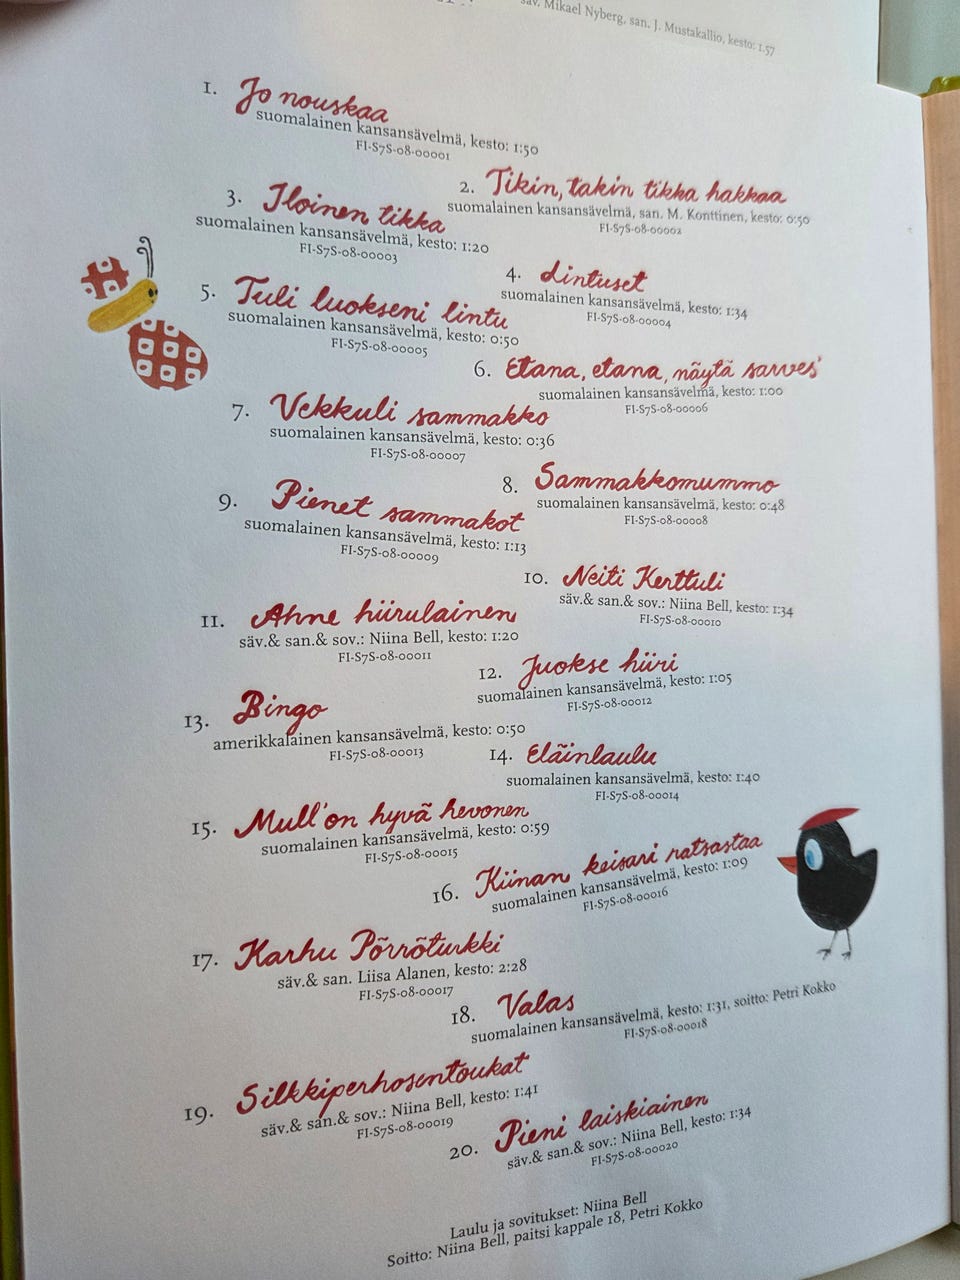 säv. Mikael Nyberg, san. J. Mustakallio, kesto: 1.57
1. Jo nouskaa
suomalainen kansansävelmä, kesto: 1:50
FI-S7S-08-00001
2. Tikin, takin tikka hakkaa
suomalainen kansansävelmä, san. M. Konttinen, kesto: 0:50
FI-S7S-08-00002
3. Iloinen tikka
suomalainen kansansävelmä, kesto: 1:20
FI-S7S-08-00003
4. Lintuset
suomalainen kansansävelmä, kesto: 1:34
FI-S7S-08-00004
5. Tuli luokseni lintu
suomalainen kansansävelmä, kesto: 0:50
FI-S7S-08-00005
6. Etana, etana, näytä sarves'
suomalainen kansansävelmä, kesto: 1:00
FI-S7S-08-00006
7. Vekkuli sammakko
suomalainen kansansävelmä, kesto: 0:36
FI-S7S-08-00007
8. Sammakkomummo
suomalainen kansansävelmä, kesto: 0:48
FI-S7S-08-00008
9. Pienet sammakot
suomalainen kansansävelmä, kesto: 1:13
FI-S7S-08-00009
10. Neiti Kerttuli
säv.& san.& sov.: Niina Bell, kesto: 1:34
FI-S7S-08-00010
11. Ahne hiirulainen
säv.& san.& sov.: Niina Bell, kesto: 1:20
FI-S7S-08-00011
12. Juokse hiiri
suomalainen kansansävelmä, kesto: 1:05
FI-S7S-08-00012
13. Bingo
amerikkalainen kansansävelmä, kesto: 0:50
FI-S7S-08-00013
14. Eläinlaulu
suomalainen kansansävelmä, kesto: 1:40
FI-S7S-08-00014
15. Mull'on hyvä hevonen
suomalainen kansansävelmä, kesto: 0:59
FI-S7S-08-00015
16. Kiinan keisari ratsastaa
suomalainen kansansävelmä, kesto: 1:09
FI-S7S-08-00016
17. Karhu Pörröturkki
säv.& san. Liisa Alanen, kesto: 2:28
FI-S7S-08-00017
18. Valas
suomalainen kansansävelmä, kesto: 1:31, soitto: Petri Kokko
FI-S7S-08-00018
19. Silkkiperhosentoukat
säv.& san.& sov.: Niina Bell, kesto: 1:41
FI-S7S-08-00019
20. Pieni laiskiainen
säv.& san.& sov.: Niina Bell, kesto: 1:34
FI-S7S-08-00020
Laulu ja sovitukset: Niina Bell
Soitto: Niina Bell, paitsi kappale 18, Petri Kokko